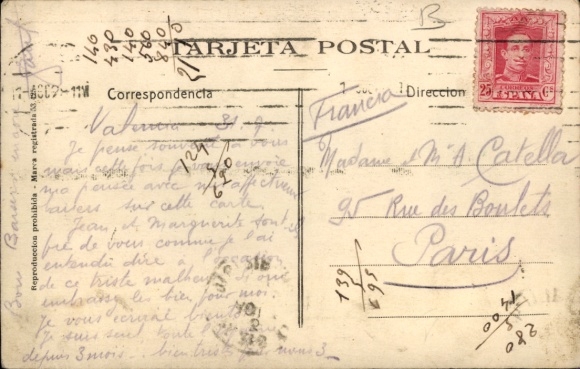 B
140
430
140
560
840
TARJETA POSTAL
CORREOS
25 ESPAÑA Cs
Correspondencia
Direccion
Francia
Reproduccion prohibida - Marca registrada
Valencia 31. 9.
Je pense souvent à vous
mais cette fois je vous envoie
ma pensée avec mes affectueux
baisers sur cette carte.
Jean et Marguerite sont-ils
près de vous comme je l'ai
entendu dire à
de ce triste malheur
embrasse les bien pour moi.
Je vous écrirai bientôt
Je suis seul toute
depuis 3 mois. bien triste pour nous 3
Bons Baisers
124
5
620
Madame et Mr A. Catella
95 Rue des Boulets
Paris
139
5
695
1400
280